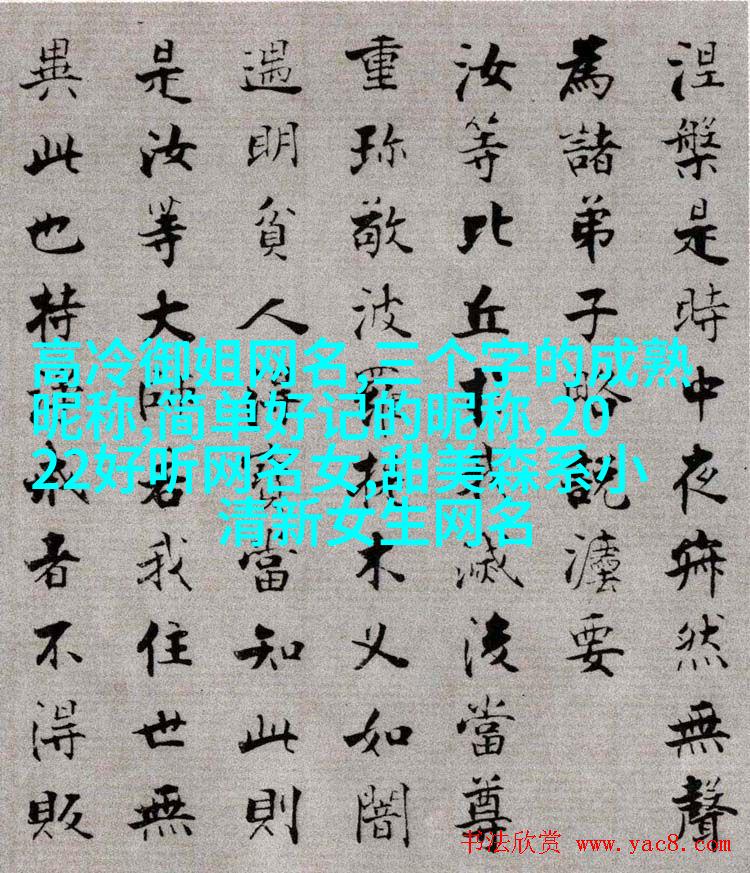 涅槃是時中夜寂然無聲
為諸弟子略說灋要
汝等比丘於我滅後當尊
重珍敬波羅提木叉如闇
遇明貧人得寶當知此則
是汝等大師若我住世無
異此也持淨戒者不得販
高冷御姐网名,三个字的成熟
昵称,简单好记的昵称,20
22好听网名女,甜美森系小
清新女生网名
书法欣赏 www.yac8.com